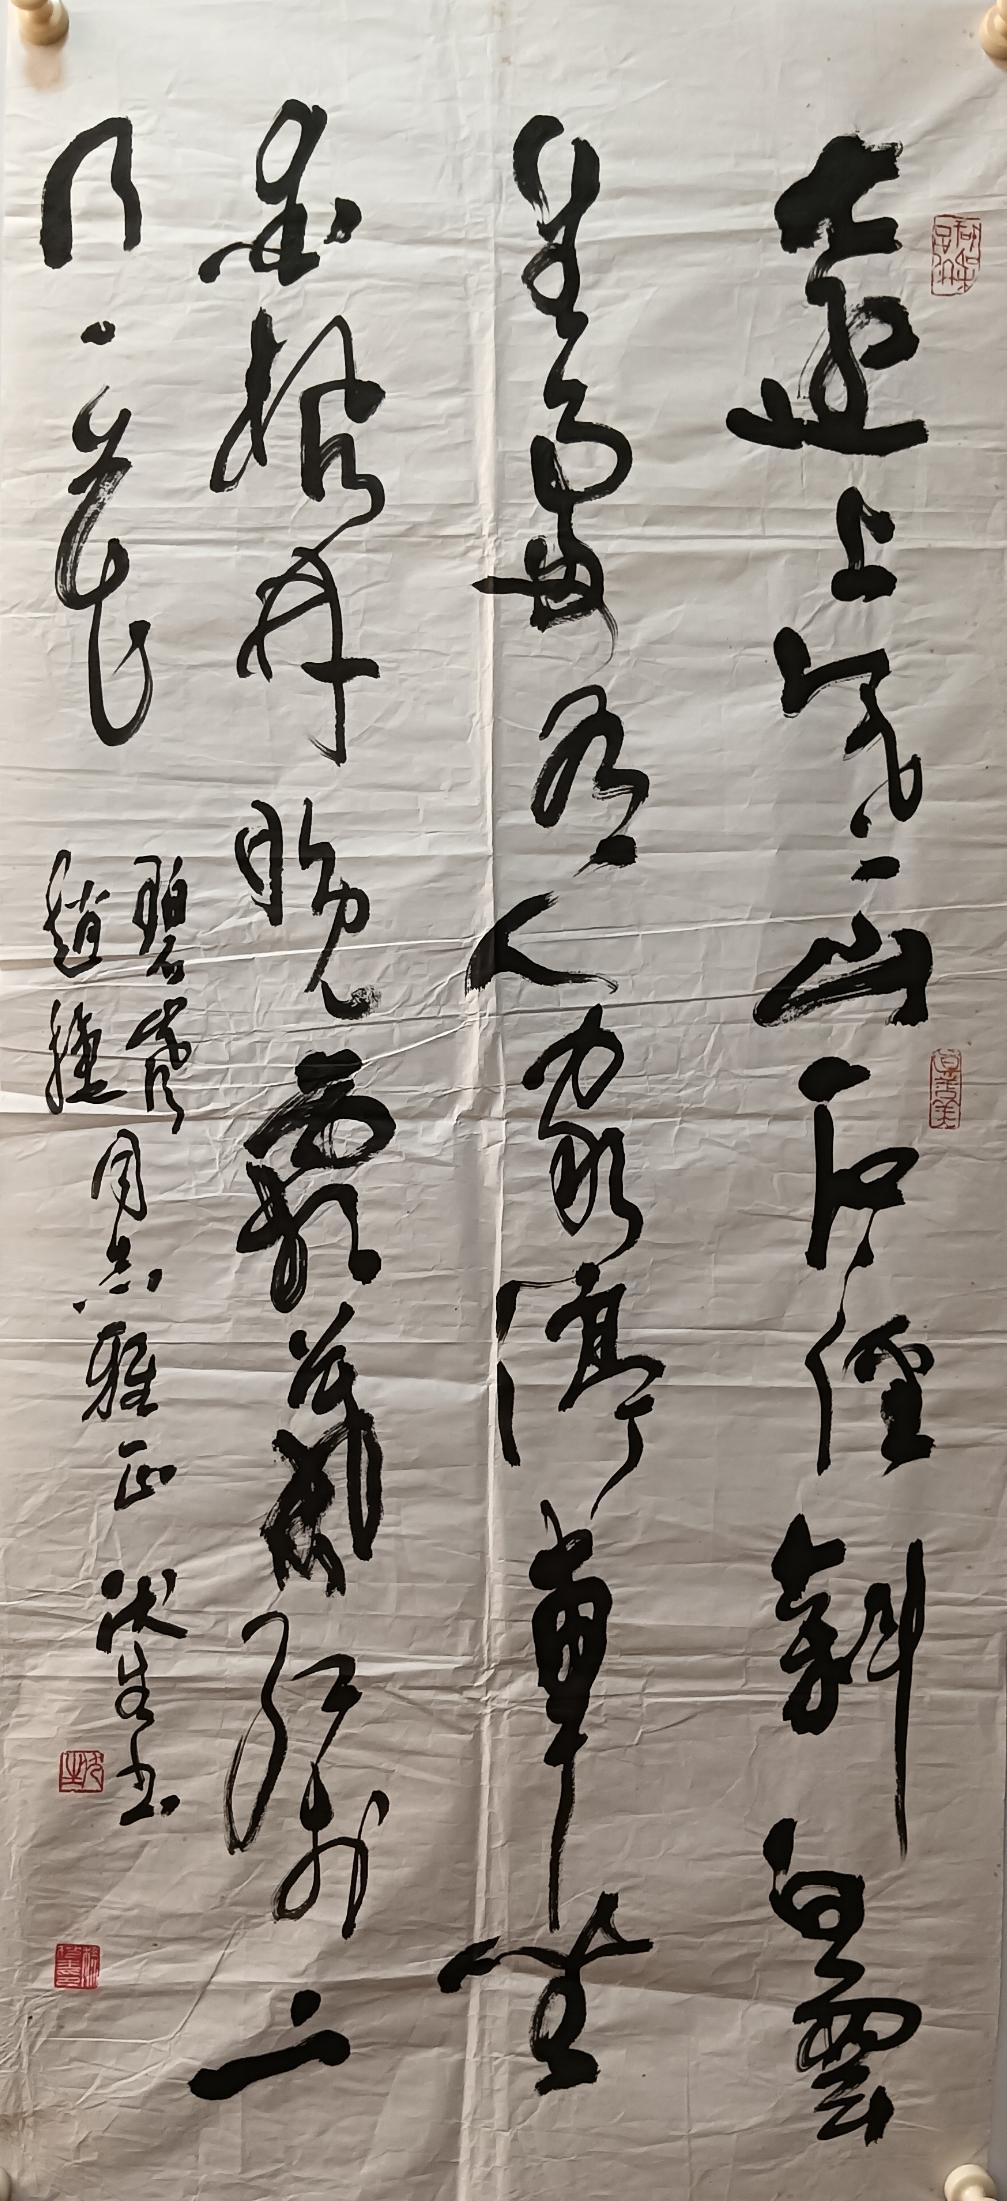 遠上寒山石徑斜白雲
生處有人家停車坐
愛楓林晚霜葉紅於二
月花
碧
趙捷
同志雅正 伏生书